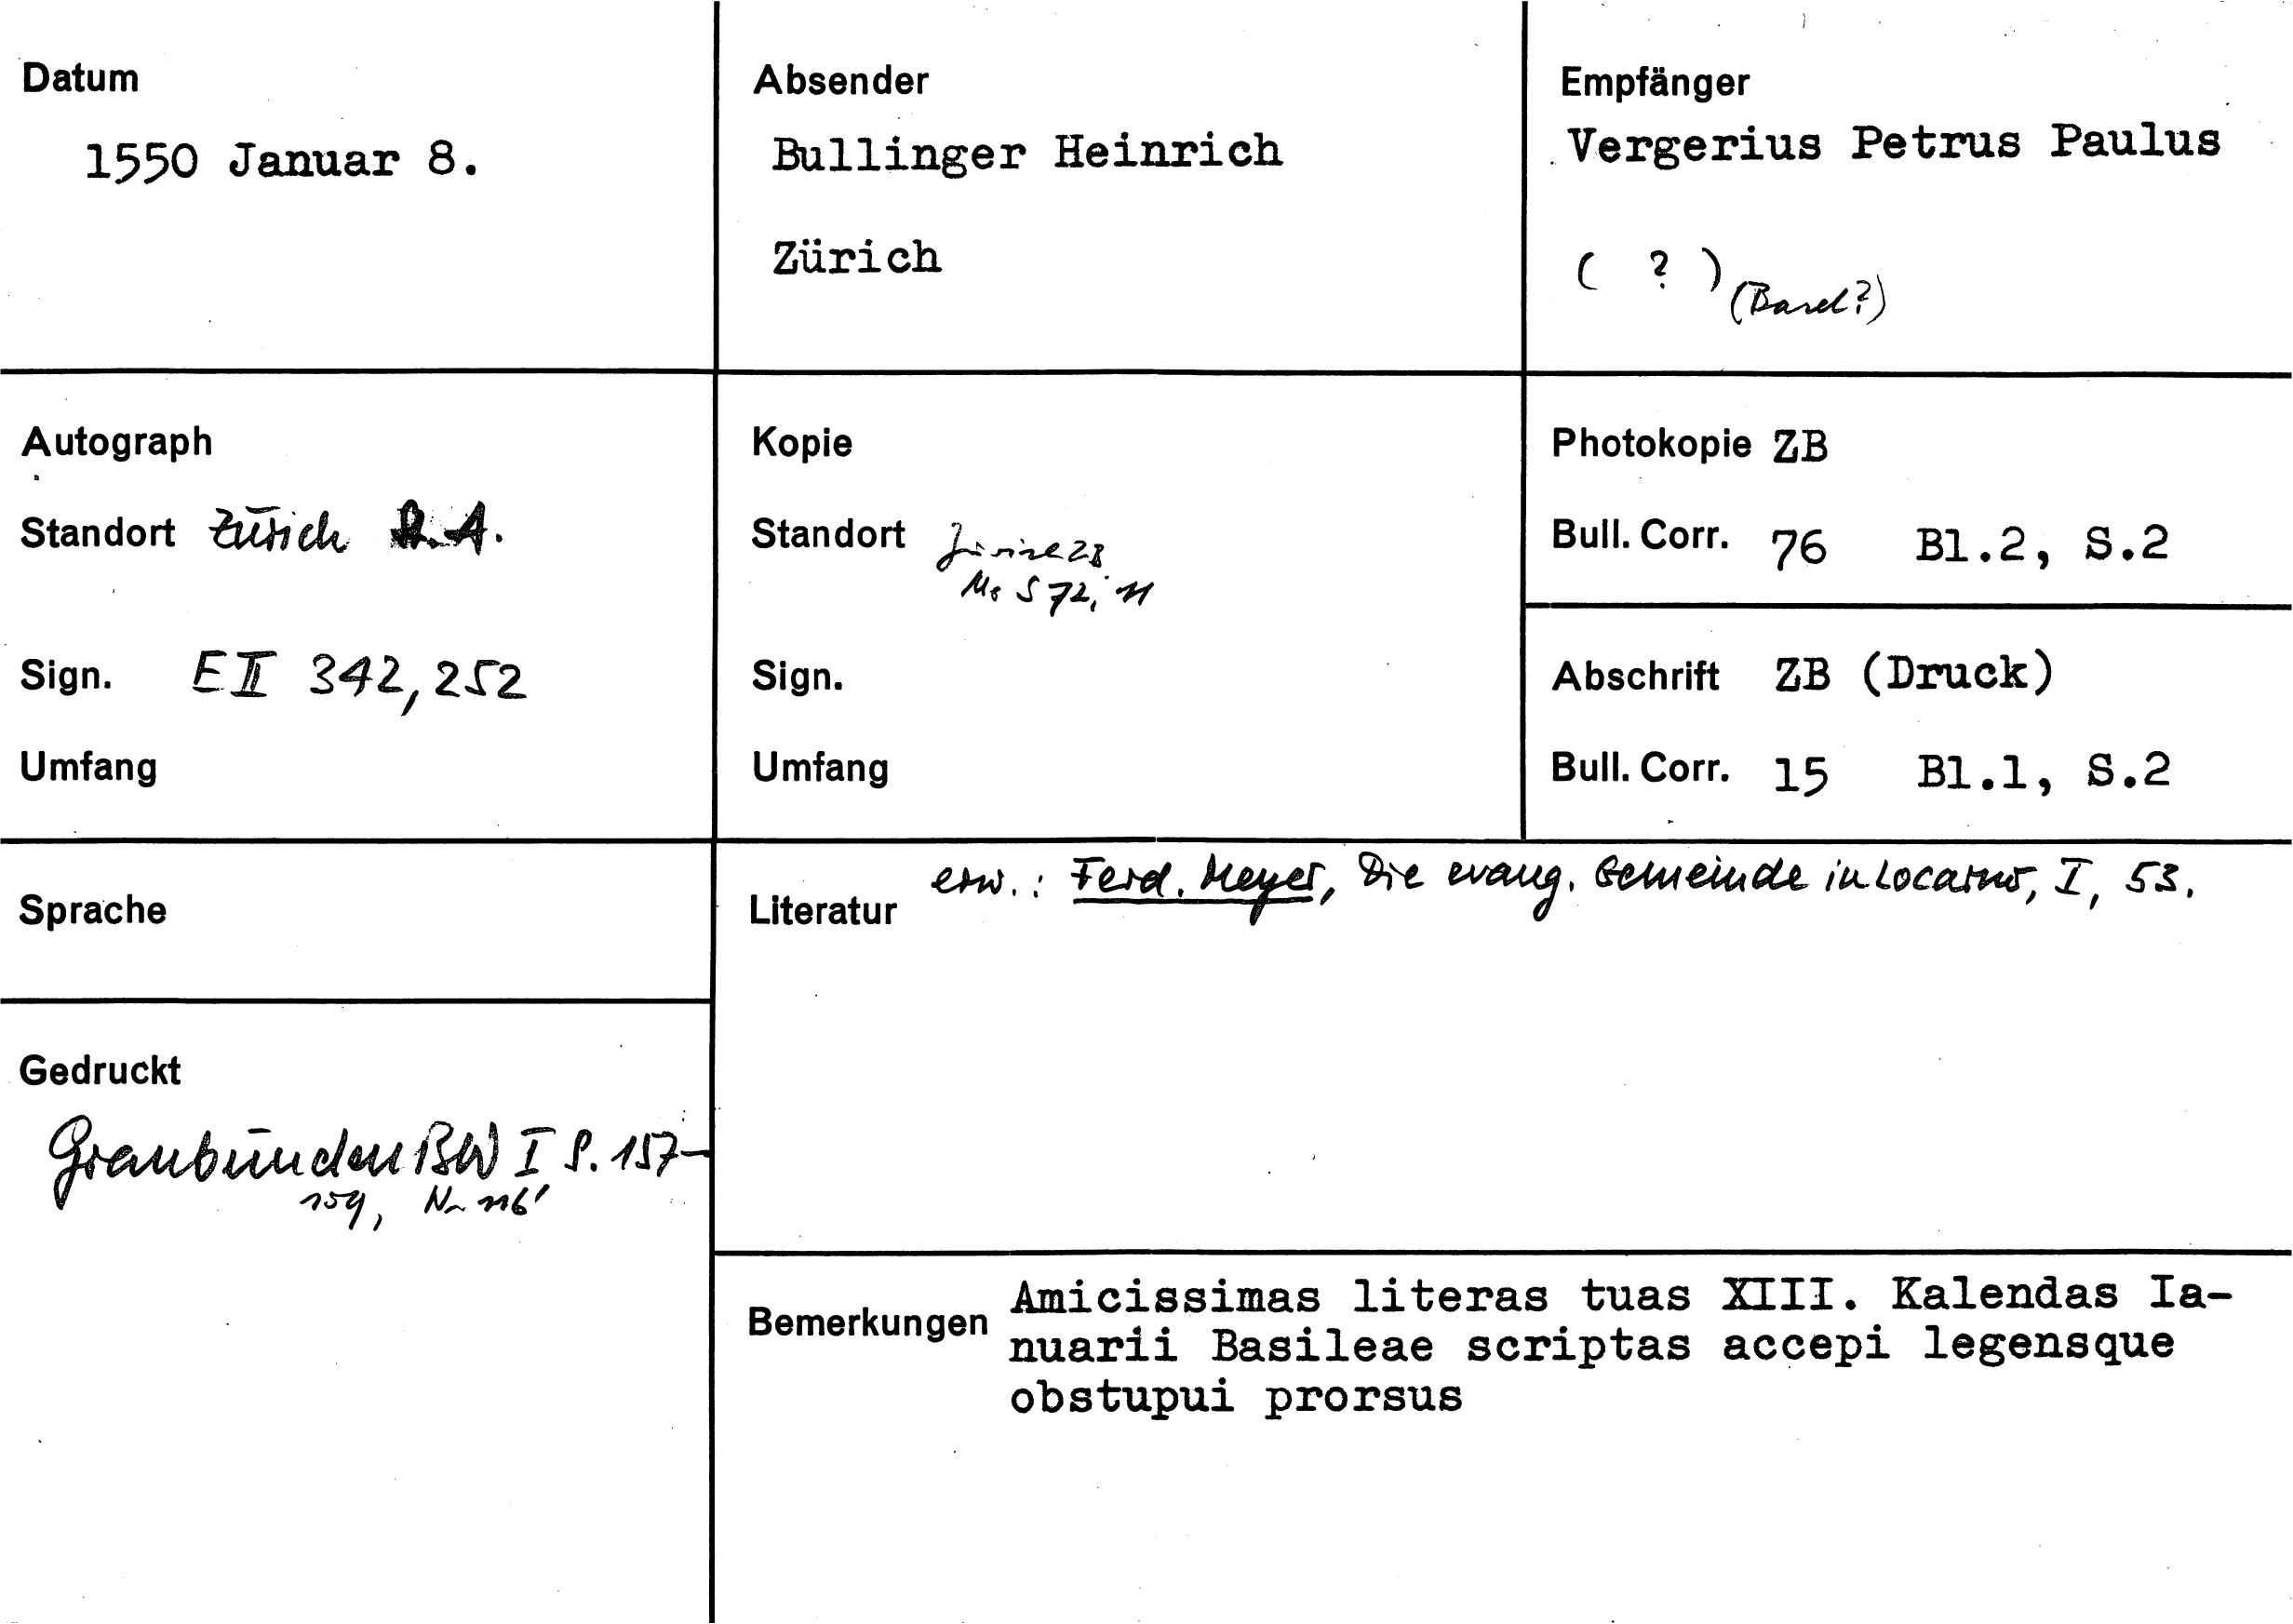 Datum
1550 Januar 8.
Absender
Bullinger Heinrich
Zürich
Empfänger
Vergerius Petrus Paulus
( ? ) (Basel?)
Autograph
Standort Zürich
Sign. E II 342, 252
Umfang
Kopie
Standort Zürich ZB
Ms S 72, 11
Sign.
Umfang
Photokopie ZB
Bull. Corr. 76 Bl.2, S.2
Abschrift ZB (Druck)
Bull. Corr. 15 Bl.1, S.2
Sprache
Gedruckt
Graubünden BW I S. 157-
159, Nr 116
Literatur erw.: Ferd. Meyer, Die evang. Gemeinde in Locarno, I, 53.
Bemerkungen Amicissimas literas tuas XIII. Kalendas Ia-
nuarii Basileae scriptas accepi legensque
obstupui prorsus